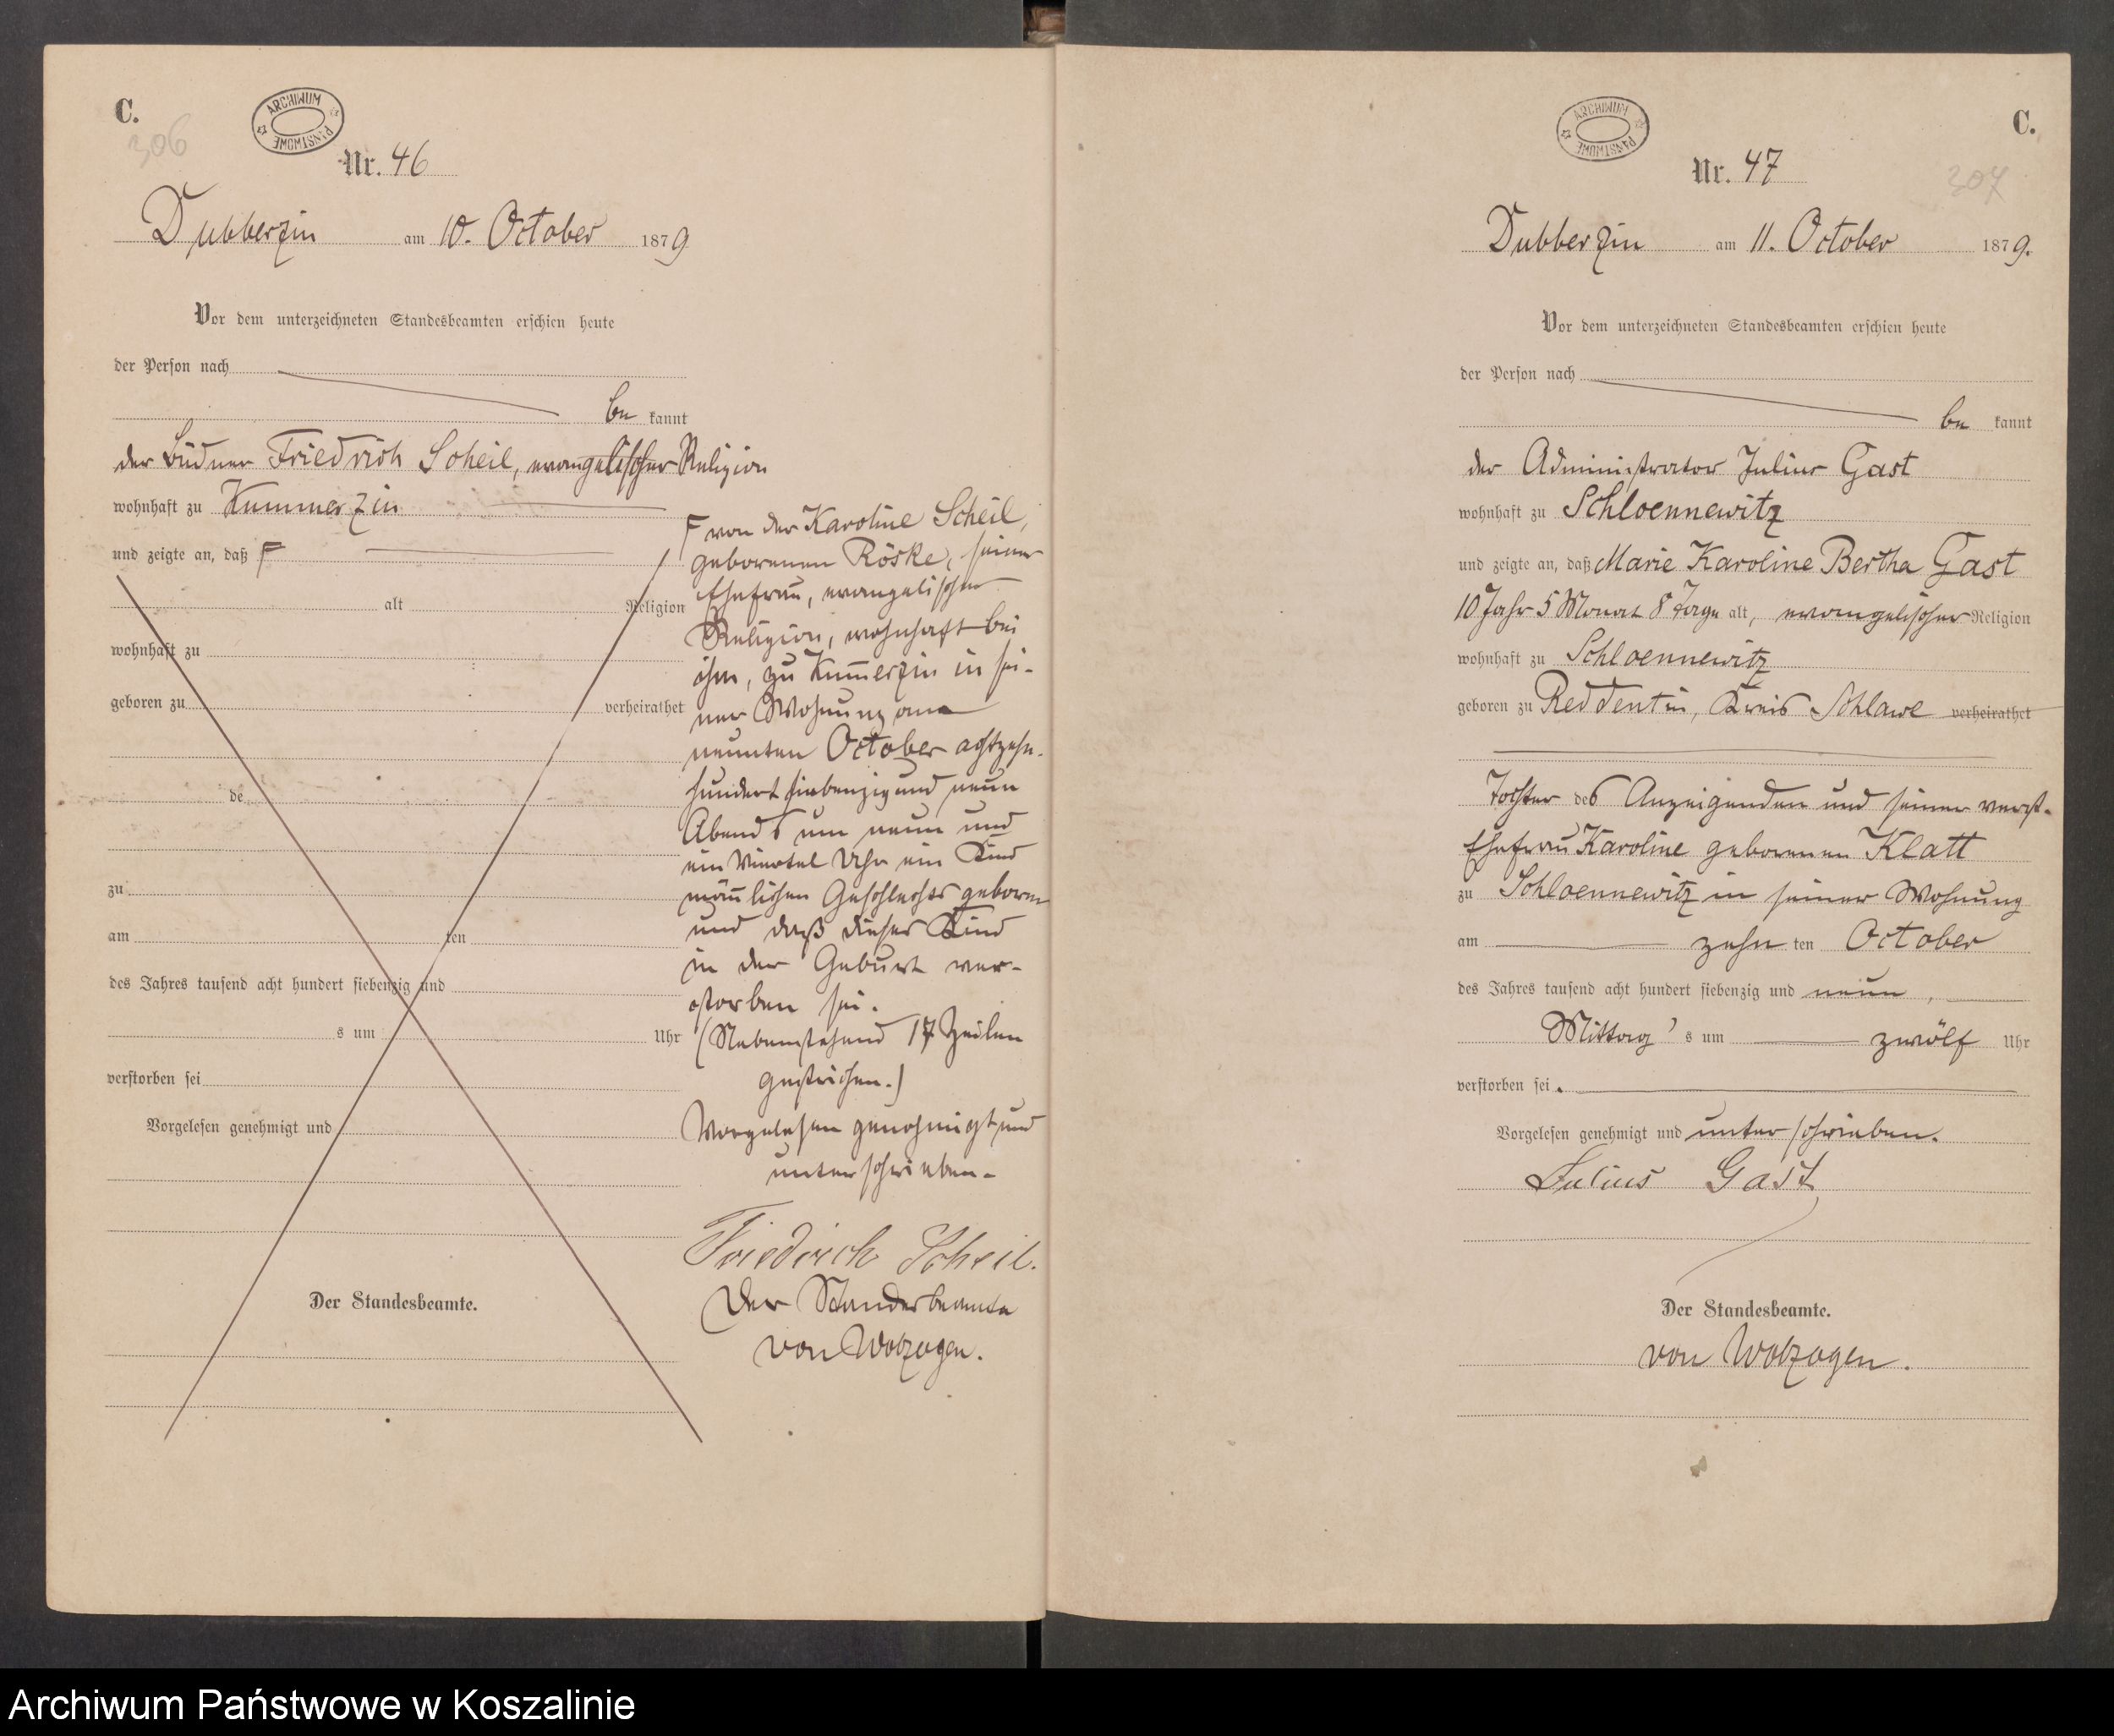 C.
306
ARCHIWUM PAŃSTWOWE
Nr. 46
Dubberzin am 10. October 1879
Vor dem unterzeichneten Standesbeamten erschien heute
der Person nach
be kannt
der Büdner Friedrich Scheil, evangelischer Religion
wohnhaft zu Kummerzin
und zeigte an, daß F
alt Religion
wohnhaft zu
geboren zu verheirathet
de
zu
am ten
des Jahres tausend acht hundert siebenzig und
s um Uhr
verstorben sei
Vorgelesen genehmigt und
Der Standesbeamte.
F von der Karoline Scheil,
geborenen Röske, seiner
Ehefrau, evangelischer
Religion, wohnhaft bei
ihm, zu Kum̄erzin in sei-
ner Wohnung am
neunten October achtzehn-
hundert siebenzig und neun
Abends um neun und
ein Viertel Uhr ein Kind
män̄lichen Geschlechts geboren
und daß dieses Kind
in der Geburt ver-
storben sei.
(Nebenstehend 17 Zeilen
gestrichen.)
Vorgelesen genehmigt und
unterschrieben.
Friedrich Scheil.
Der Standesbeamte
von Wolzogen.
C.
307
ARCHIWUM PAŃSTWOWE
Nr. 47
Dubberzin am 11. October 1879.
Vor dem unterzeichneten Standesbeamten erschien heute
der Person nach
be kannt
der Administrator Julius Gast
wohnhaft zu Schloennewitz
und zeigte an, daß Marie Karoline Bertha Gast
10 Jahr 5 Monat 8 Tage alt, evangelischer Religion
wohnhaft zu Schloennewitz
geboren zu Reddentin, Kreis Schlawe verheirathet
Tochter des Anzeigenden und seiner verst.
Ehefrau Karoline geborenen Klatt
zu Schloennewitz in seiner Wohnung
am zehn ten October
des Jahres tausend acht hundert siebenzig und neun,
Mittag's um zwölf Uhr
verstorben sei.
Vorgelesen genehmigt und unterschrieben.
Julius Gast
Der Standesbeamte.
von Wolzogen.
Archiwum Państwowe w Koszalinie